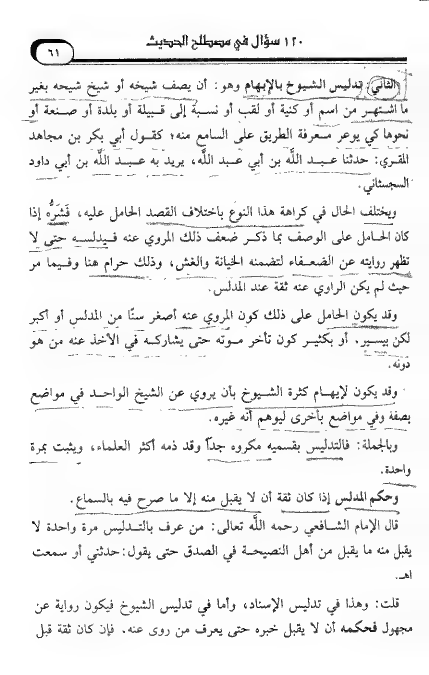 ١٢٠ سؤال في مصطلح الحديث
٦١
(الثاني) تدليس الشيوخ بالإيهام وهو: أن يصف شيخه أو شيخ شيخه بغير
ما اشتهر من اسم أو كنية أو لقب أو نسبة إلى قبيلة أو بلدة أو صنعة أو
نحوها كي يوعر معرفة الطريق على السامع منه؛ كقول أبي بكر بن مجاهد
المقري: حدثنا عبد الله بن أبي عبد الله، يريد به عبد الله بن أبي داود
السجستاني.
ويختلف الحال في كراهة هذا النوع باختلاف القصد الحامل عليه، فَشَرُّه إذا
كان الحامل على الوصف بما ذكر ضعف ذلك المروي عنه فيدلسه حتى لا
تظهر روايته عن الضعفاء لتضمنه الخيانة والغش، وذلك حرام هنا وفيما مر
حيث لم يكن الراوي عنه ثقة عند المدلس.
وقد يكون الحامل على ذلك كون المروي عنه أصغر سنًا من المدلس أو أكبر
لكن بيسير. أو بكثير كون تأخر موته حتى يشاركه في الأخذ عنه من هو
دونه.
وقد يكون لإيهام كثرة الشيوخ بأن يروي عن الشيخ الواحد في مواضع
بصفة وفي مواضع بأخرى ليوهم أنه غيره.
وبالجملة: فالتدليس بقسميه مكروه جداً وقد ذمه أكثر العلماء، ويثبت بمرة
واحدة.
وحكم المدلس إذا كان ثقة أن لا يقبل منه إلا ما صرح فيه بالسماع.
قال الإمام الشافعي رحمه الله تعالى: من عرف بالتدليس مرة واحدة لا
يقبل منه ما يقبل من أهل النصيحة في الصدق حتى يقول: حدثني أو سمعت
اهـ.
قلت: وهذا في تدليس الإسناد، وأما في تدليس الشيوخ فيكون رواية عن
مجهول فحكمه أن لا يقبل خبره حتى يعرف من روى عنه. فإن كان ثقة قبل